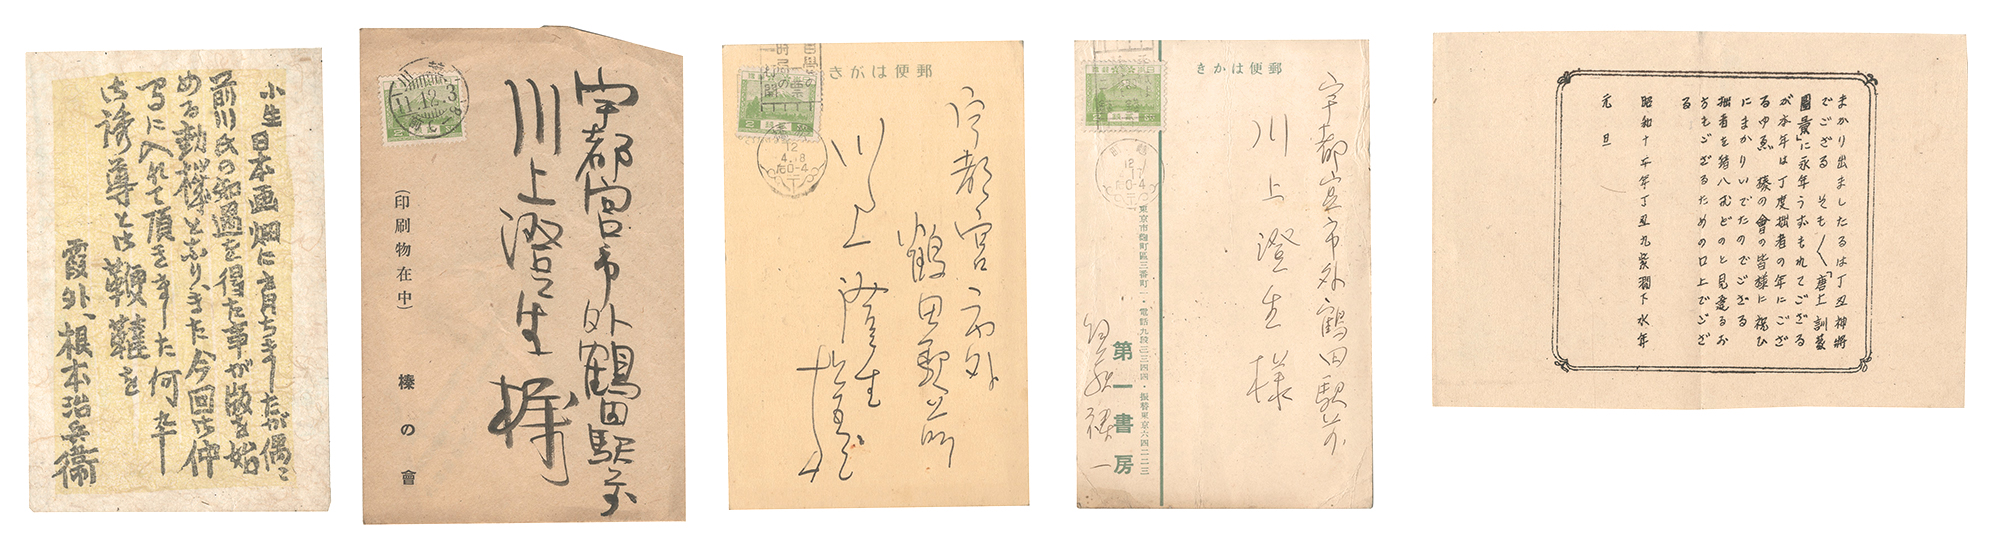 小生日本画畑にき月ちましたが偶々
前川氏の知遇を得た事が版を始
める動機となりました今回御仲
間に入れて頂きました何卒
御誘導と御鞭韃を
霞外、根本治兵衛
11.12.3
宇都宮市外鶴田駅前
川上澄生様
(印刷物在中)
榛の會
郵便はがき
12
4.8
后0-4
宇都宮市外
鶴田駅前
川上澄生
郵便はがき
12
后0-4
宇都宮市外鶴田駅前
川上澄生様
東京市麹町區三番町一・電話九段三三四四・振替東京六四二二三
第一書房
まかり出ましたるは丁丑神將
でござる そも〱「唐土訓蒙
圖彙」に永年うずもれてござる
が本年は丁度拙者の年にござ
るゆゑ 榛の會の皆様に福ひ
にまかりいでたのでござる
拙者を猪八戒などと見違るお
方もござるための口上でござ
る
昭和十二年丁丑九紫澗下水年
元旦